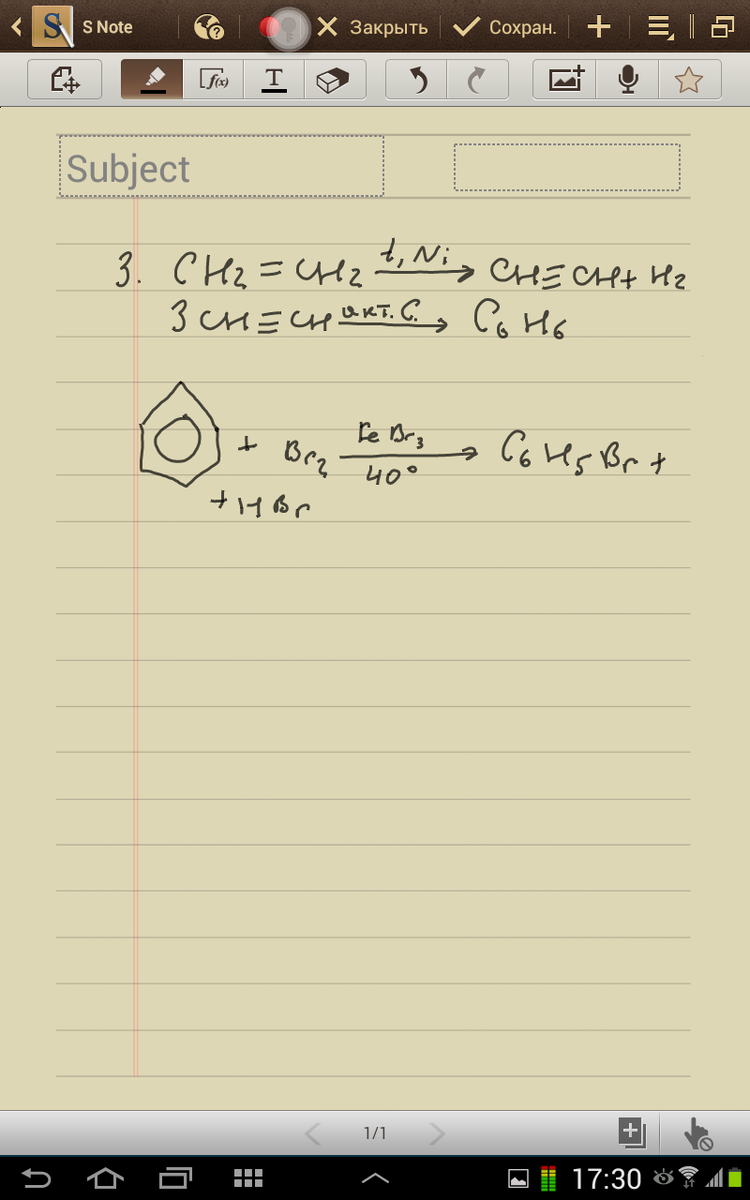 S Note
Закрыть
Сохран.
f(x)
T
Subject
3. CH2 = CH2 t, Ni → CH ≡ CH + H2
3 CH ≡ CH акт. C. → C6H6
+ Br2 FeBr3 40° → C6H5Br +
+ HBr
1/1
17:30